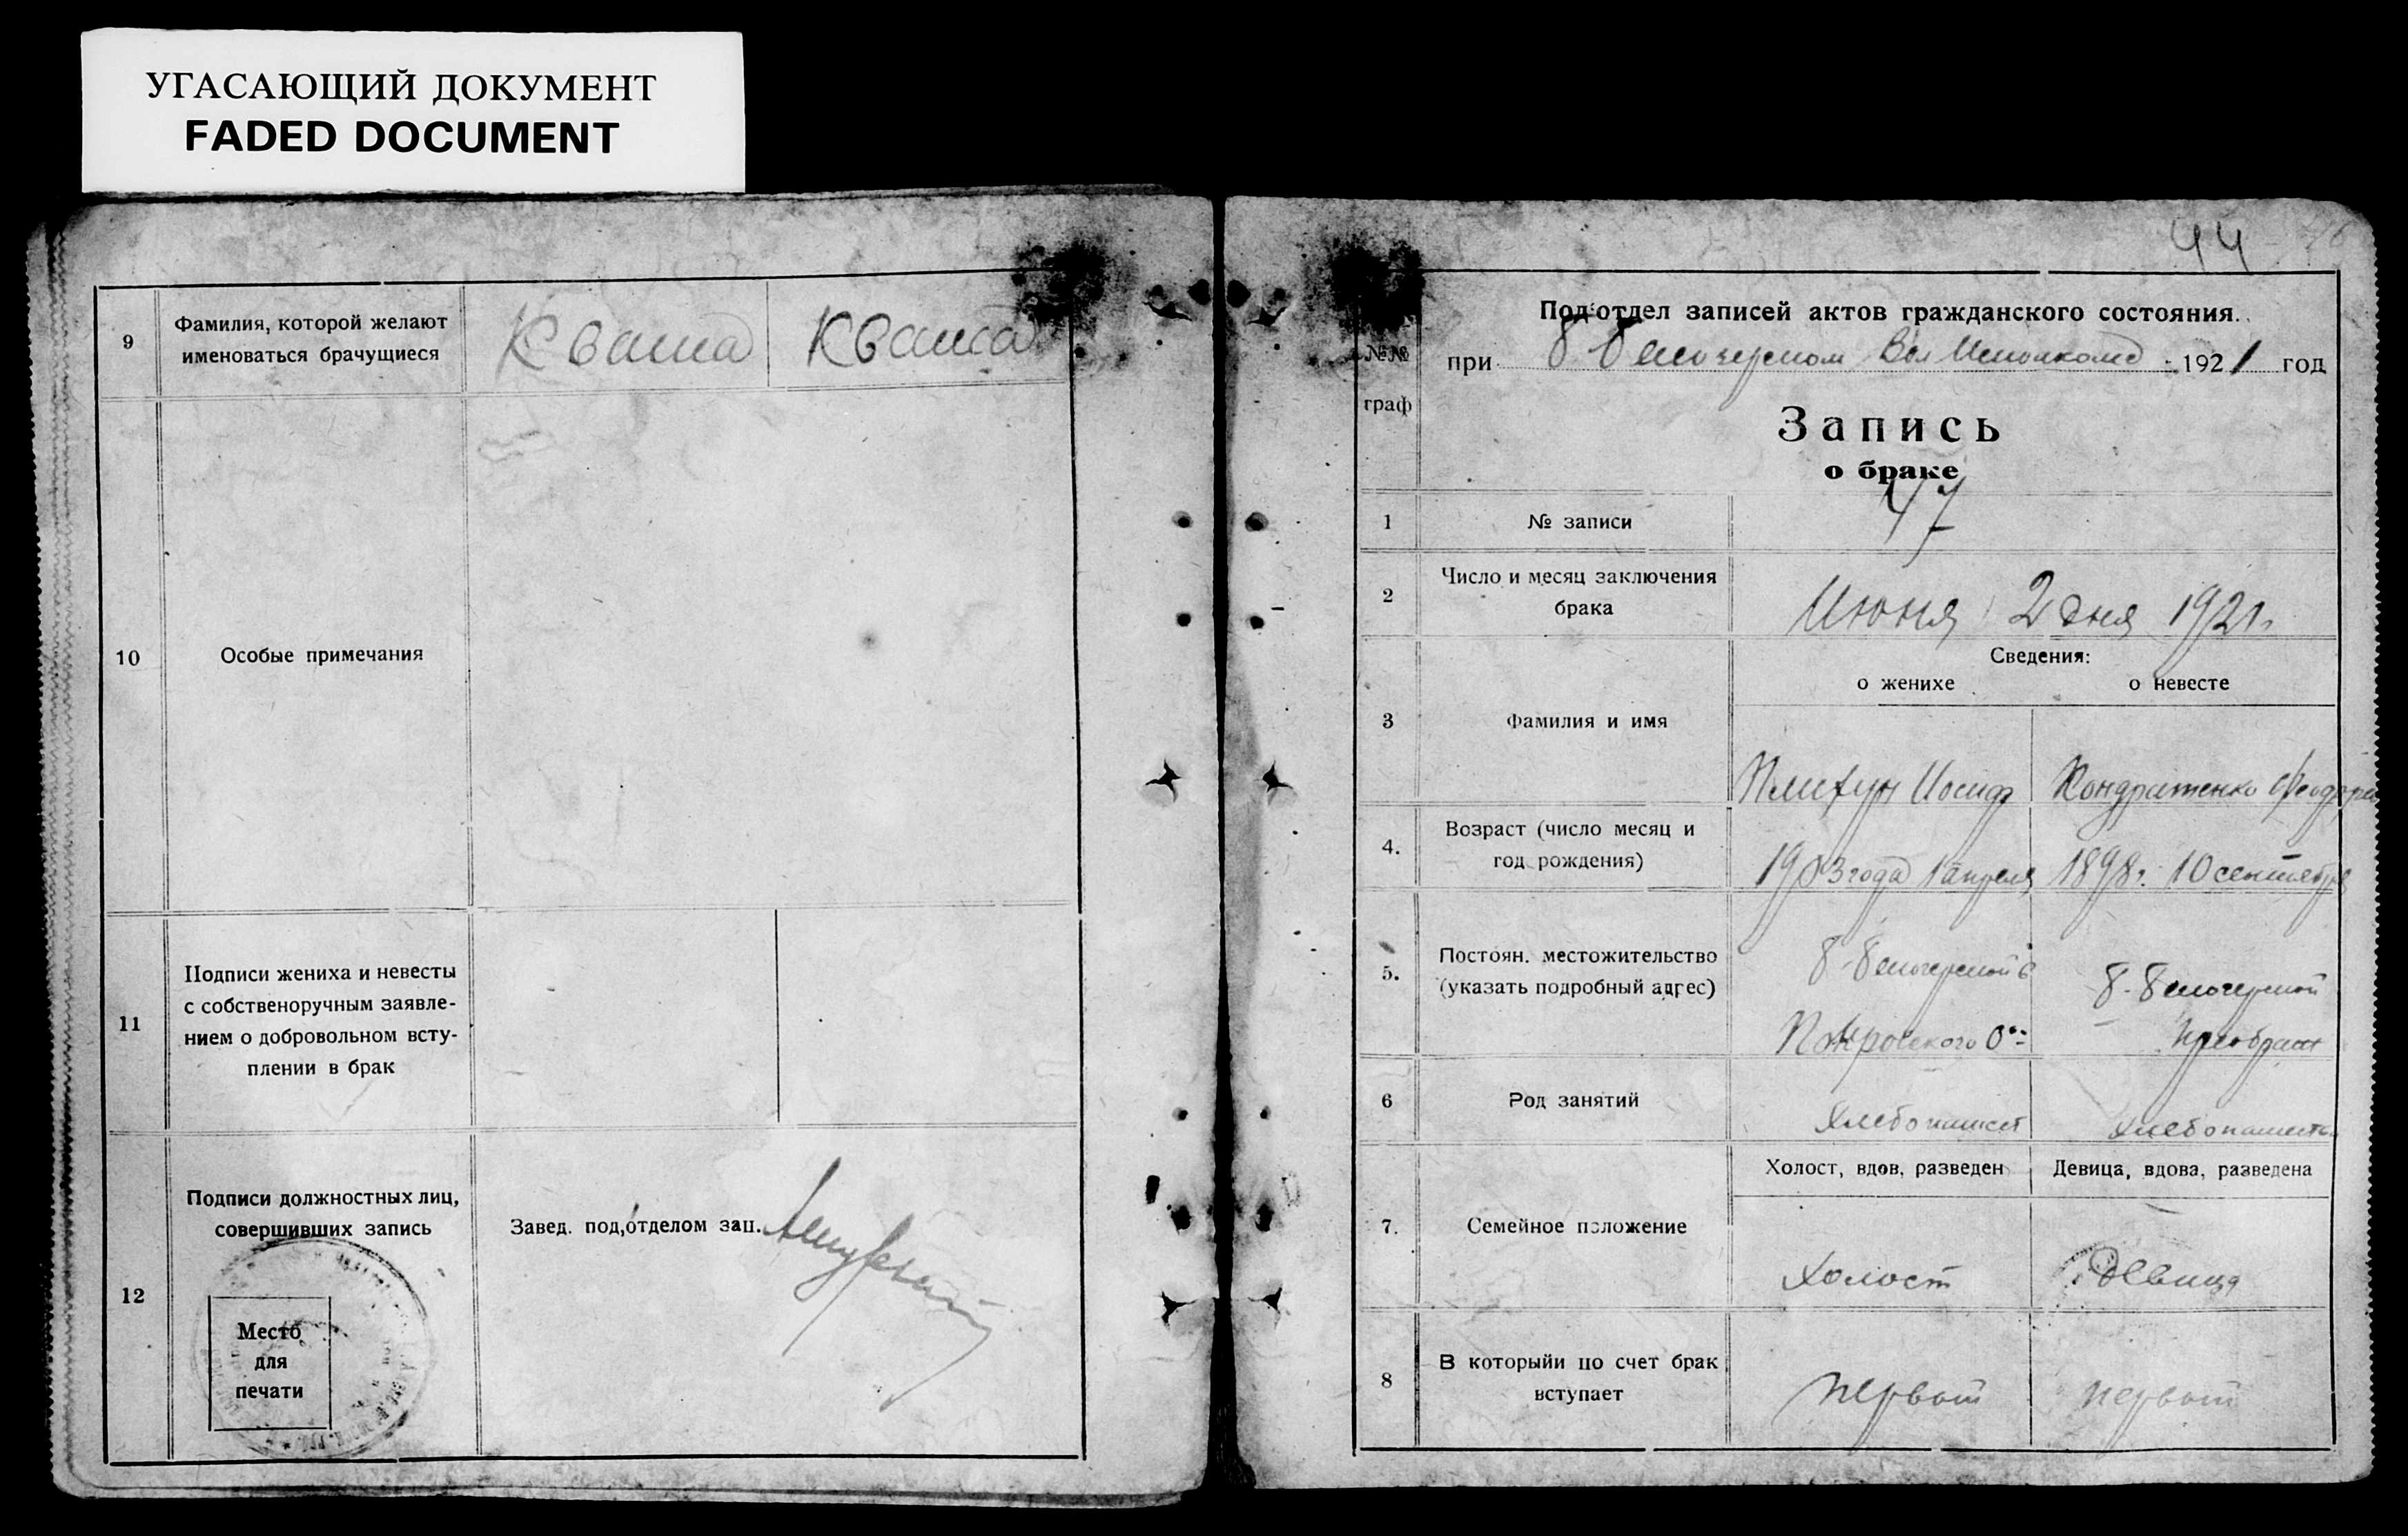 УГАСАЮЩИЙ ДОКУМЕНТ
FADED DOCUMENT
9
Фамилия, которой желают
именоваться брачущиеся
Кваша
Кваша
10
Особые примечания
11
Подписи жениха и невесты
с собственоручным заявле-
нием о добровольном всту-
плении в брак
12
Подписи должностных лиц,
совершивших запись
Место
для
печати
Завед. под,отделом зап.
44
№№
граф
Под'отдел записей актов гражданского состояния.
при Вол Исполкоме 1921 год
Запись
о браке
1
№ записи
47
2
Число и месяц заключения
брака
Июня 2 дня 1921г.
Сведения:
о женихе
о невесте
3
Фамилия и имя
Плихун Иосиф
Кондратенко
4.
Возраст (число месяц и
год рождения)
1903 года 1 апреля
1898 г. 10 сентября
5.
Постоян. местожительство
(указать подробный адрес)
6
Род занятий
Хлебопашест
Хлебопашеств
7.
Семейное положение
Холост, вдов, разведен
Девица, вдова, разведена
Холост
Девица
8
В которыйи по счет брак
вступает
первый
первый